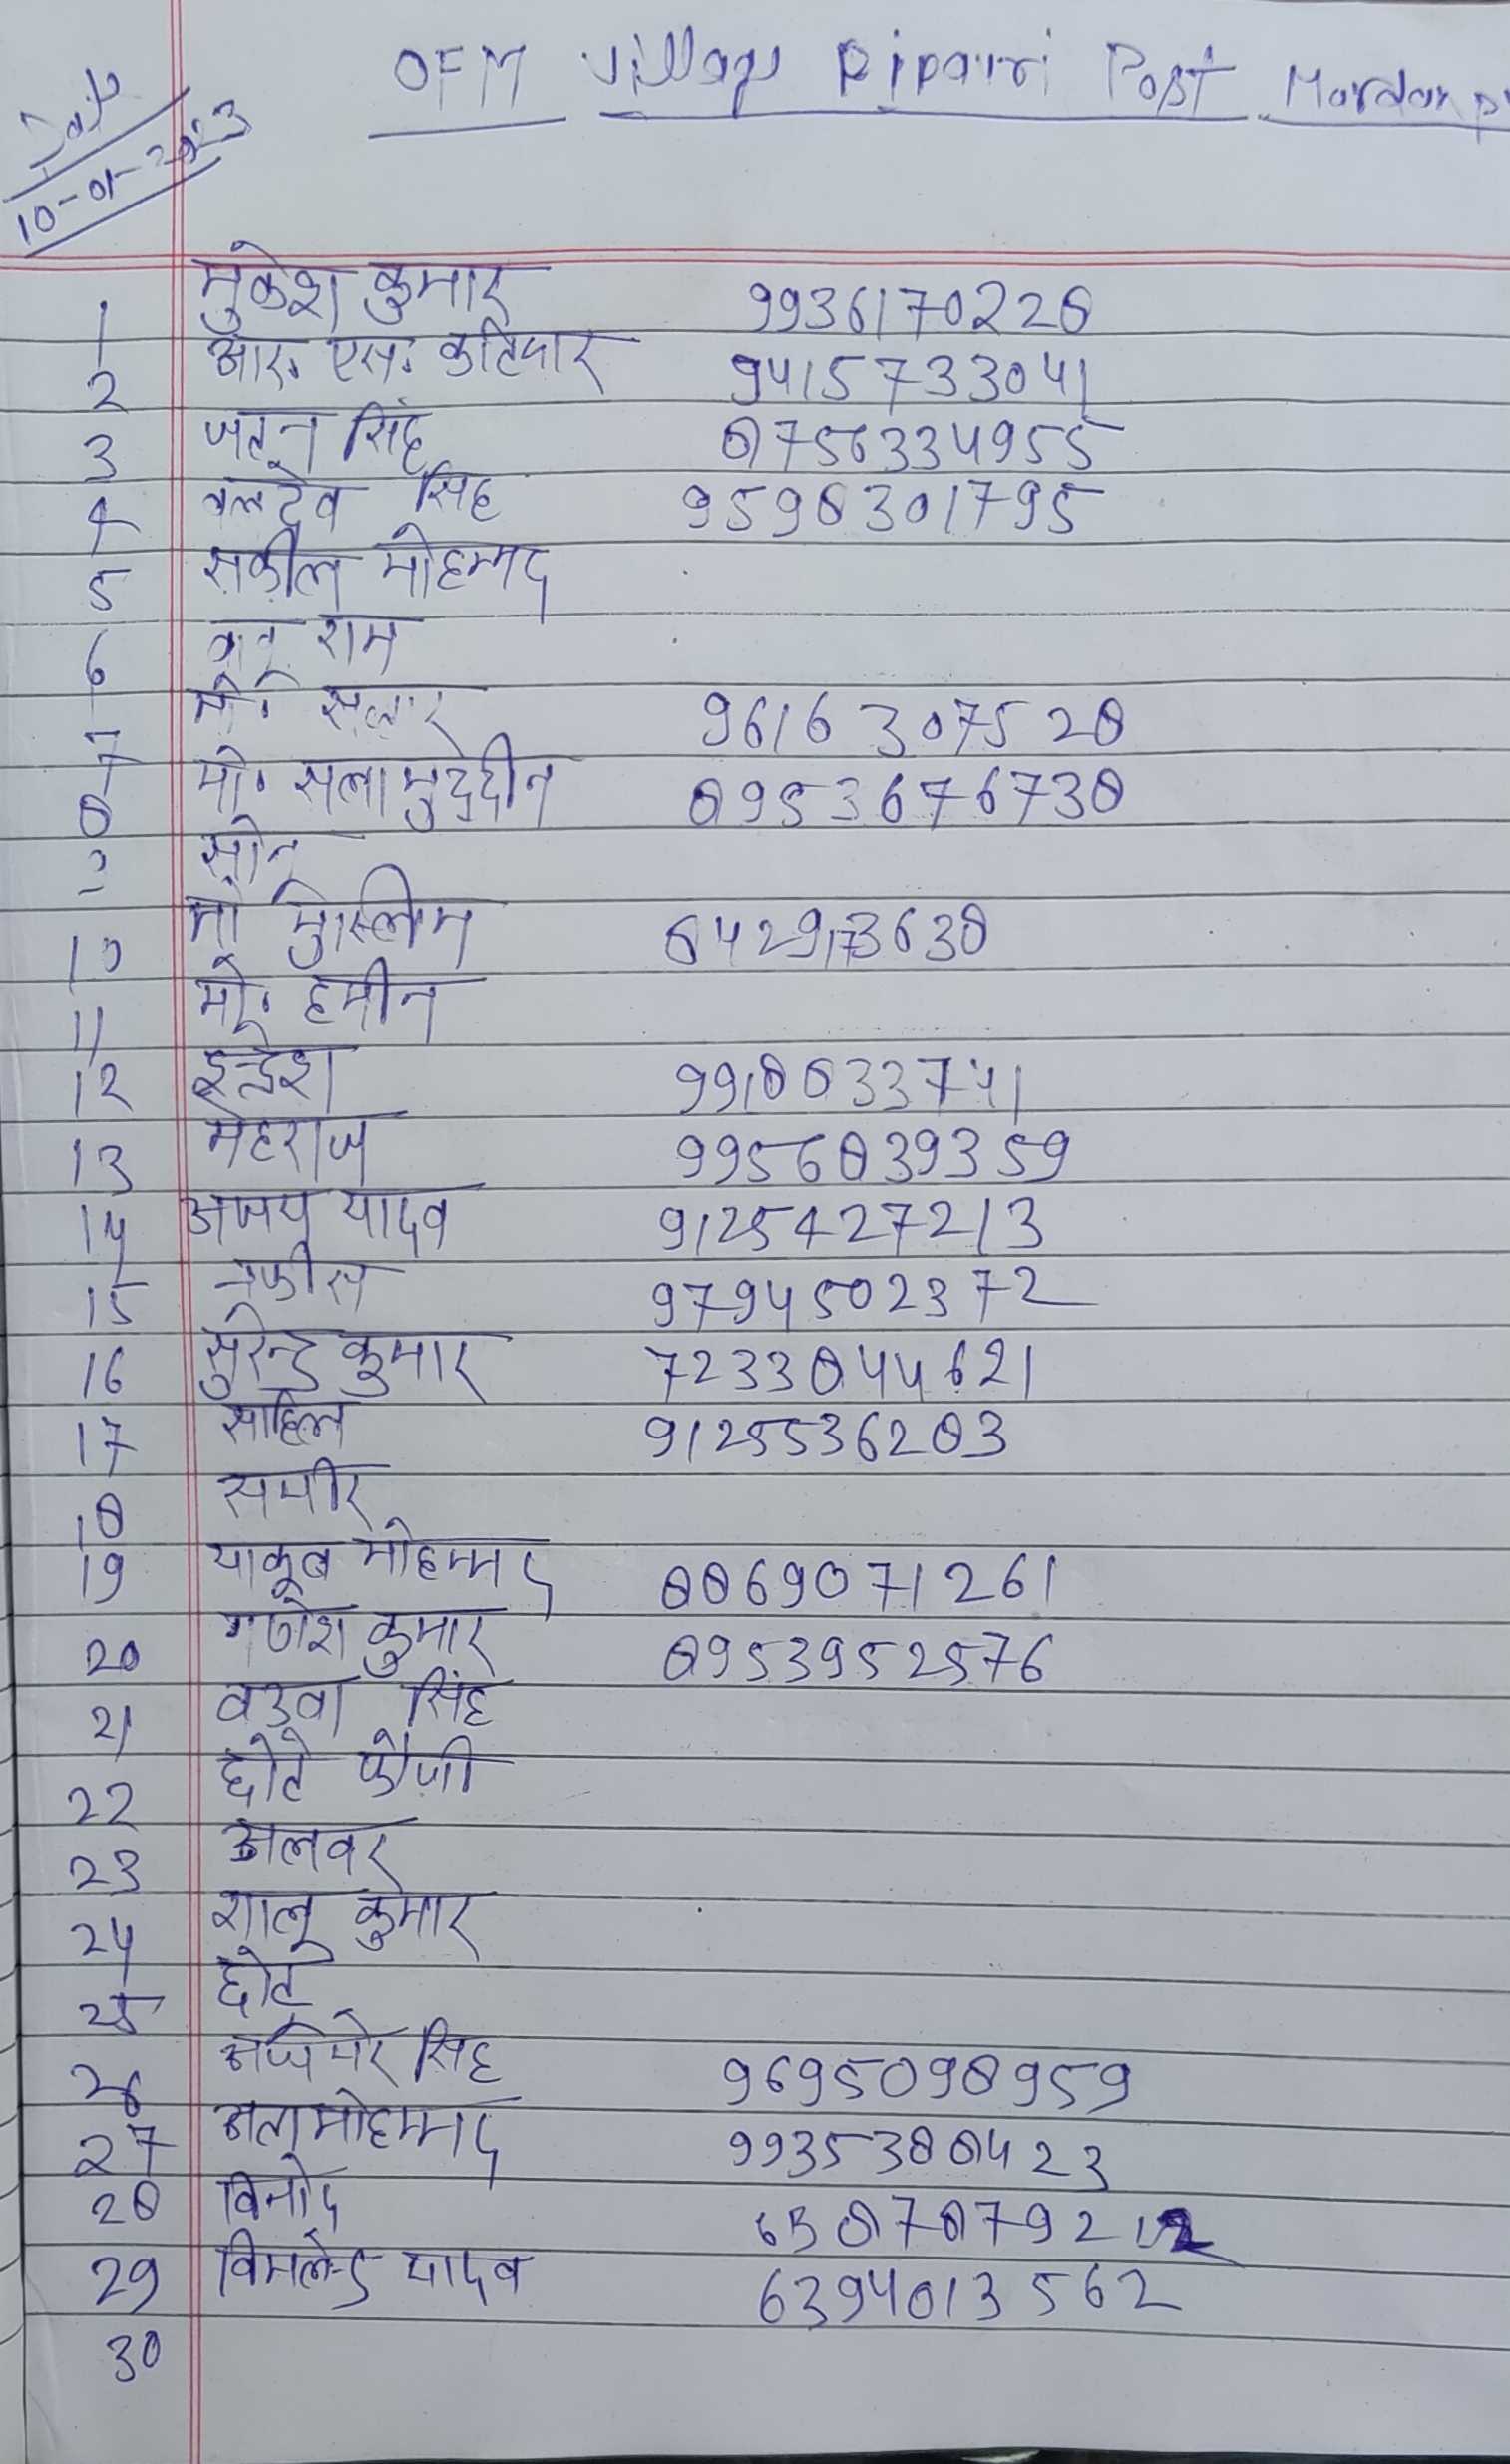 OFM Village Pipauri Post Mardanp
Date
10-01-2023
1 मुकेश कुमार 9936170228
2 आर. एस. कटियार 9415733041
3 जतन सिंह 8756334955
4 बलदेव सिंह 9598301795
5 सकील मोहम्मद
6 बाबू राम
7 मो. सत्तार 9616307528
8 मो. सलामुद्दीन 8953676738
9 सोनू
10 मो मुस्लिम 8429173638
11 मो. हमीन
12 इन्द्रेश 9918833741
13 मेहराज 9956839359
14 अजय यादव 9125427213
15 नफीस 9794502372
16 सुरेन्द्र कुमार 7233844621
17 साहिल 9125536283
18 समीर
19 याकूब मोहम्मद 8869071261
20 गणेश कुमार 8953952576
21 बउवा सिंह
22 छोटे फौजी
23 अलवर
24 शालू कुमार
25 छोटू
26 अजमेर सिंह 9695098959
27 मोहम्मद 9935388423
28 विनोद
29 विमलेन्द्र यादव 6394013562
30